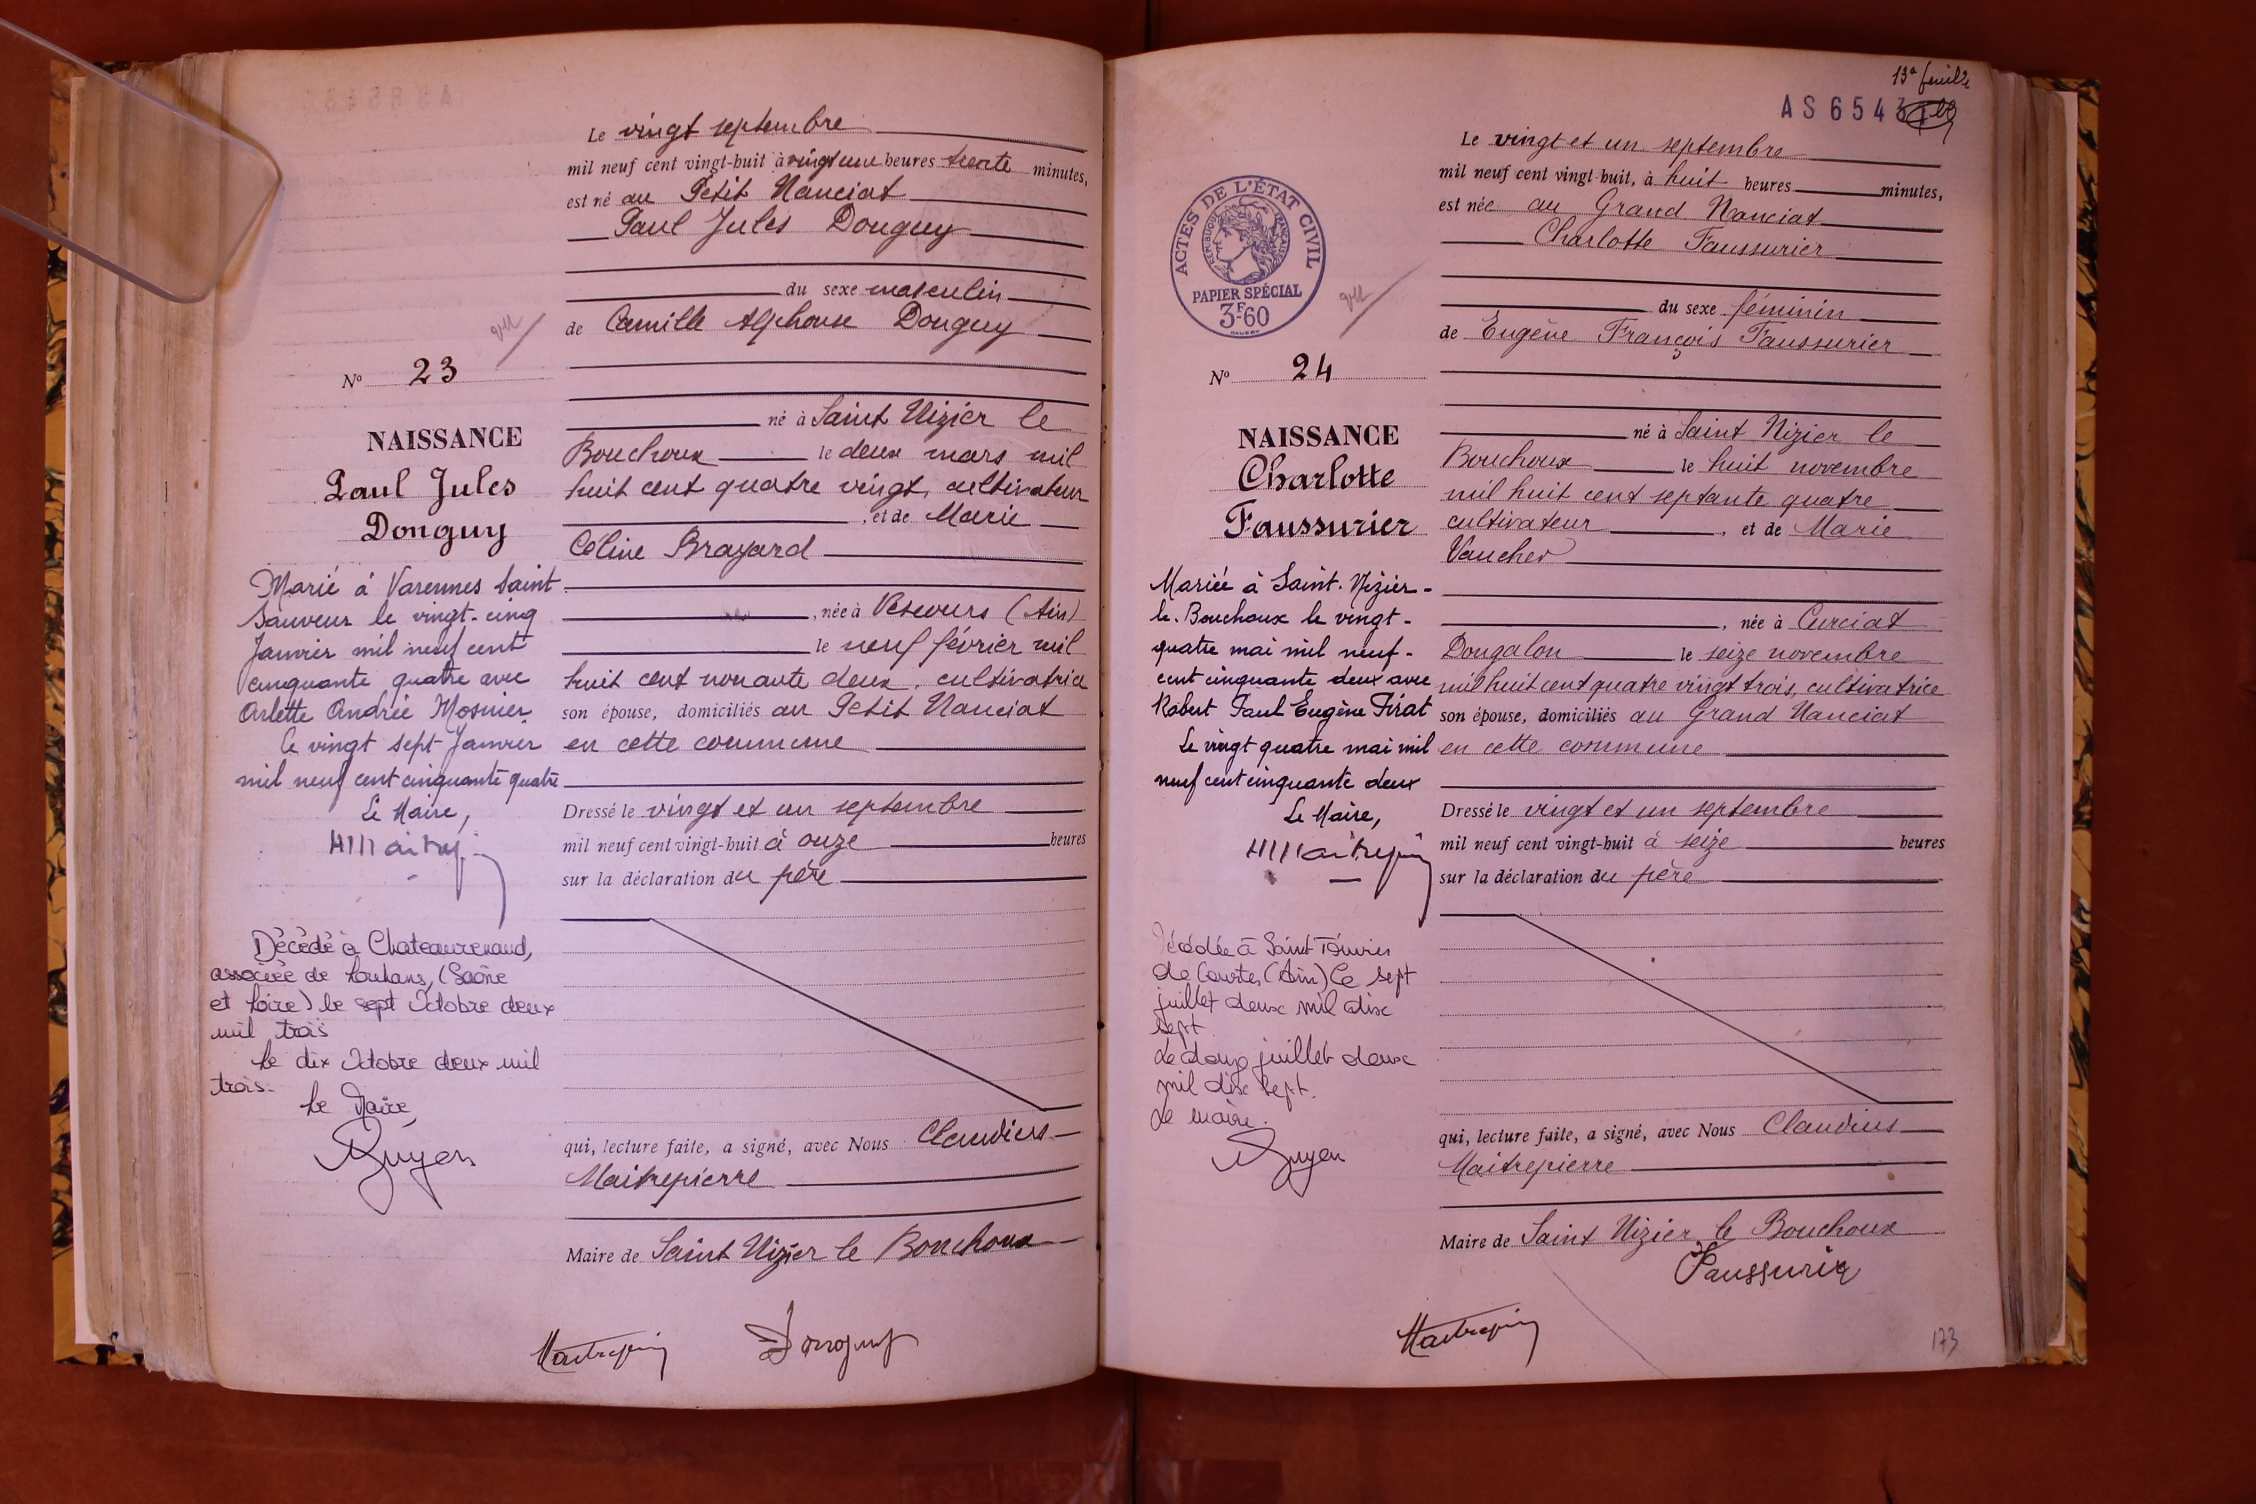 Le vingt septembre
mil neuf cent vingt-huit à vingt une heures trente minutes,
est né au Petit Nanciat
Paul Jules Donguy
du sexe masculin
de Camille Alphonse Donguy
né à Saint Nizier le
Bouchoux le deux mars mil
huit cent quatre vingt, cultivateur
, et de Marie
Céline Brayard
, née à Vescours (Ain)
le neuf février mil
huit cent nonante deux, cultivatrice
son épouse, domiciliés au Petit Nanciat
en cette commune
Dressé le vingt et un septembre
mil neuf cent vingt-huit à onze heures
sur la déclaration du père
qui, lecture faite, a signé, avec Nous Claudius
Maitrepierre
Maire de Saint Nizier le Bouchoux
Maitrepierre
Donguy
N° 23
NAISSANCE
Paul Jules
Donguy
Marié à Varennes Saint
Sauveur le vingt-cinq
Janvier mil neuf cent
cinquante quatre avec
Arlette Andrée Mosnier
Le vingt sept Janvier
mil neuf cent cinquante quatre
Le Maire,
Décédé à Chateaurenaud,
associée de Louhans, (Saône
et Loire) le sept Octobre deux
mil trois
Le dix Octobre deux mil
trois.
Le Maire,
13e feuille
AS6543
Le vingt et un septembre
mil neuf cent vingt-huit, à huit heures minutes,
est née au Grand Nanciat
Charlotte Faussurier
du sexe féminin
de Eugène François Faussurier
né à Saint Nizier le
Bouchoux le huit novembre
mil huit cent septante quatre
cultivateur , et de Marie
Vaucher
, née à Curciat
Dongalon le seize novembre
mil huit cent quatre vingt trois, cultivatrice
son épouse, domiciliés au Grand Nanciat
en cette commune
Dressé le vingt et un septembre
mil neuf cent vingt-huit à seize heures
sur la déclaration du père
qui, lecture faite, a signé, avec Nous Claudius
Maitrepierre
Maire de Saint Nizier le Bouchoux
Faussurier
Maitrepierre
173
ACTES DE L'ÉTAT CIVIL
RÉPUBLIQUE FRANÇAISE
PAPIER SPÉCIAL
3F60
N° 24
NAISSANCE
Charlotte
Faussurier
Mariée à Saint-Nizier-
le-Bouchoux le vingt-
quatre mai mil neuf-
cent cinquante deux avec
Robert Paul Eugène Firat
Le vingt quatre mai mil
neuf cent cinquante deux
Le Maire,
Décédée à Saint
de Courtes, (Ain) le sept
juillet deux mil dix
sept.
Le douze juillet deux
mil dix sept.
Le maire.